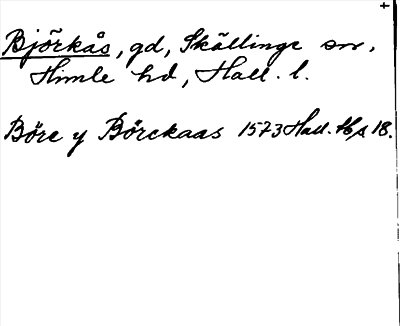 Björkås, gd, Skällinge sn,
Himle hd, Hall. l.
Böre y Börckaas 1573 Hall. 18.